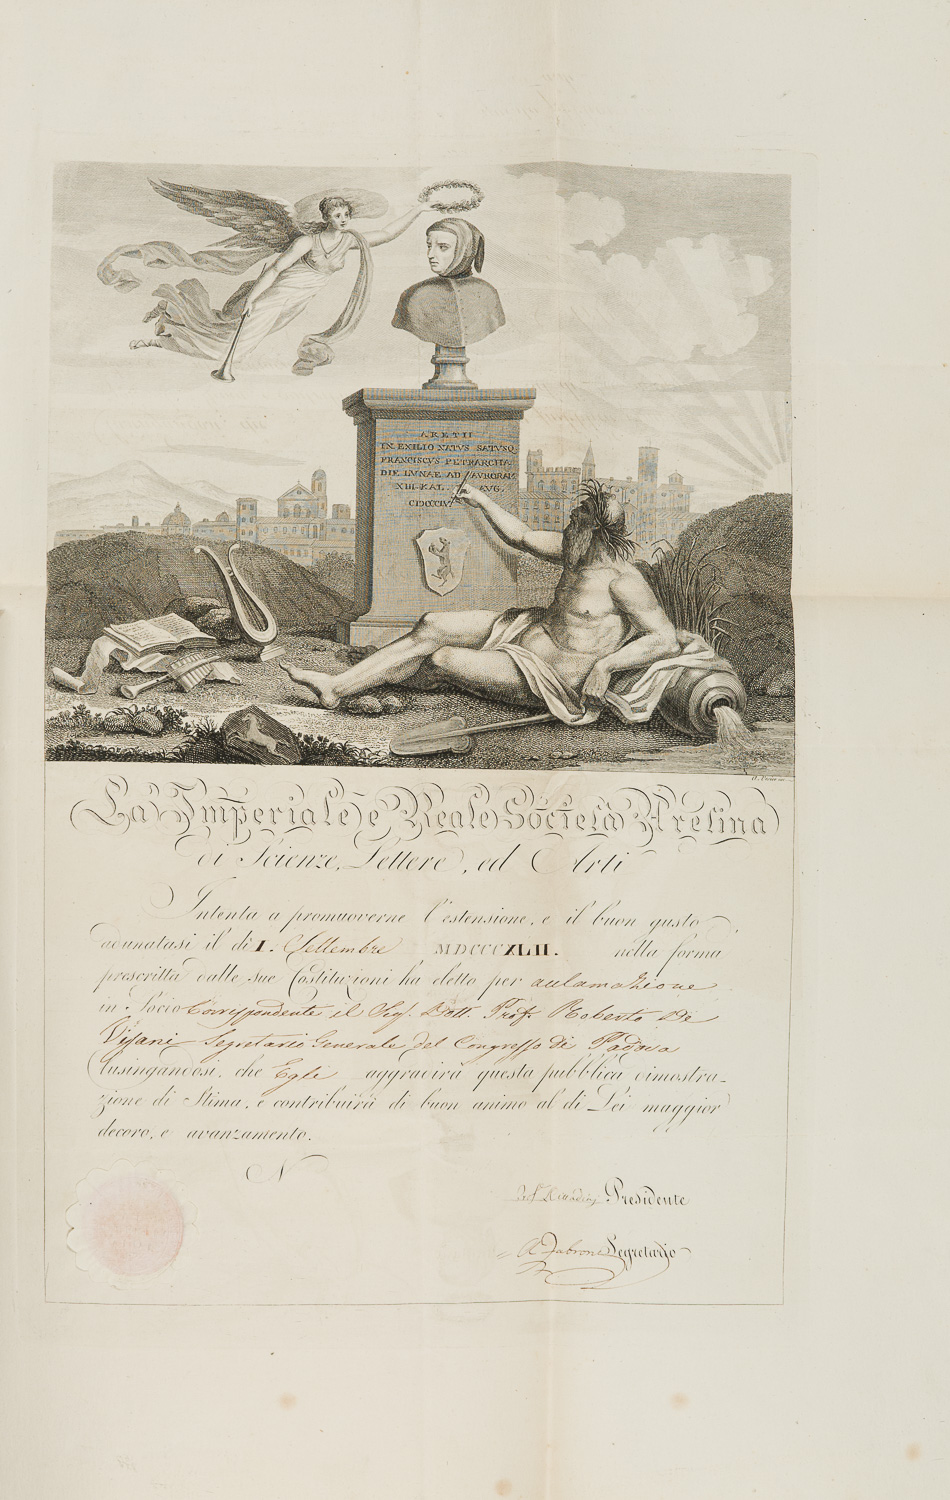 ARETII
IN EXILIO NATVS SATVSQ.
FRANCISCVS PETRARCHA
DIE LVNAE AD AVRORAM
XIII KAL. AVG.
CIƆCCCIV
La Imperiale e Reale Società Aretina
di Scienze, Lettere, ed Arti
Intenta a promuoverne l'estensione, e il buon gusto
adunatasi il dì I. Settembre MDCCCXLII. nella forma
prescritta dalle sue Costituzioni ha eletto per aclamazione
in Socio Corrispondente il Sig. Dott. Prof. Roberto De
Visani Segretario Generale del Congresso di Padova
lusingandosi, che Egli aggradirà questa pubblica dimostra-
zione di Stima, e contribuirà di buon animo al di Lei maggior
decoro, e avanzamento.
N
Presidente
A. Fabroni Segretario